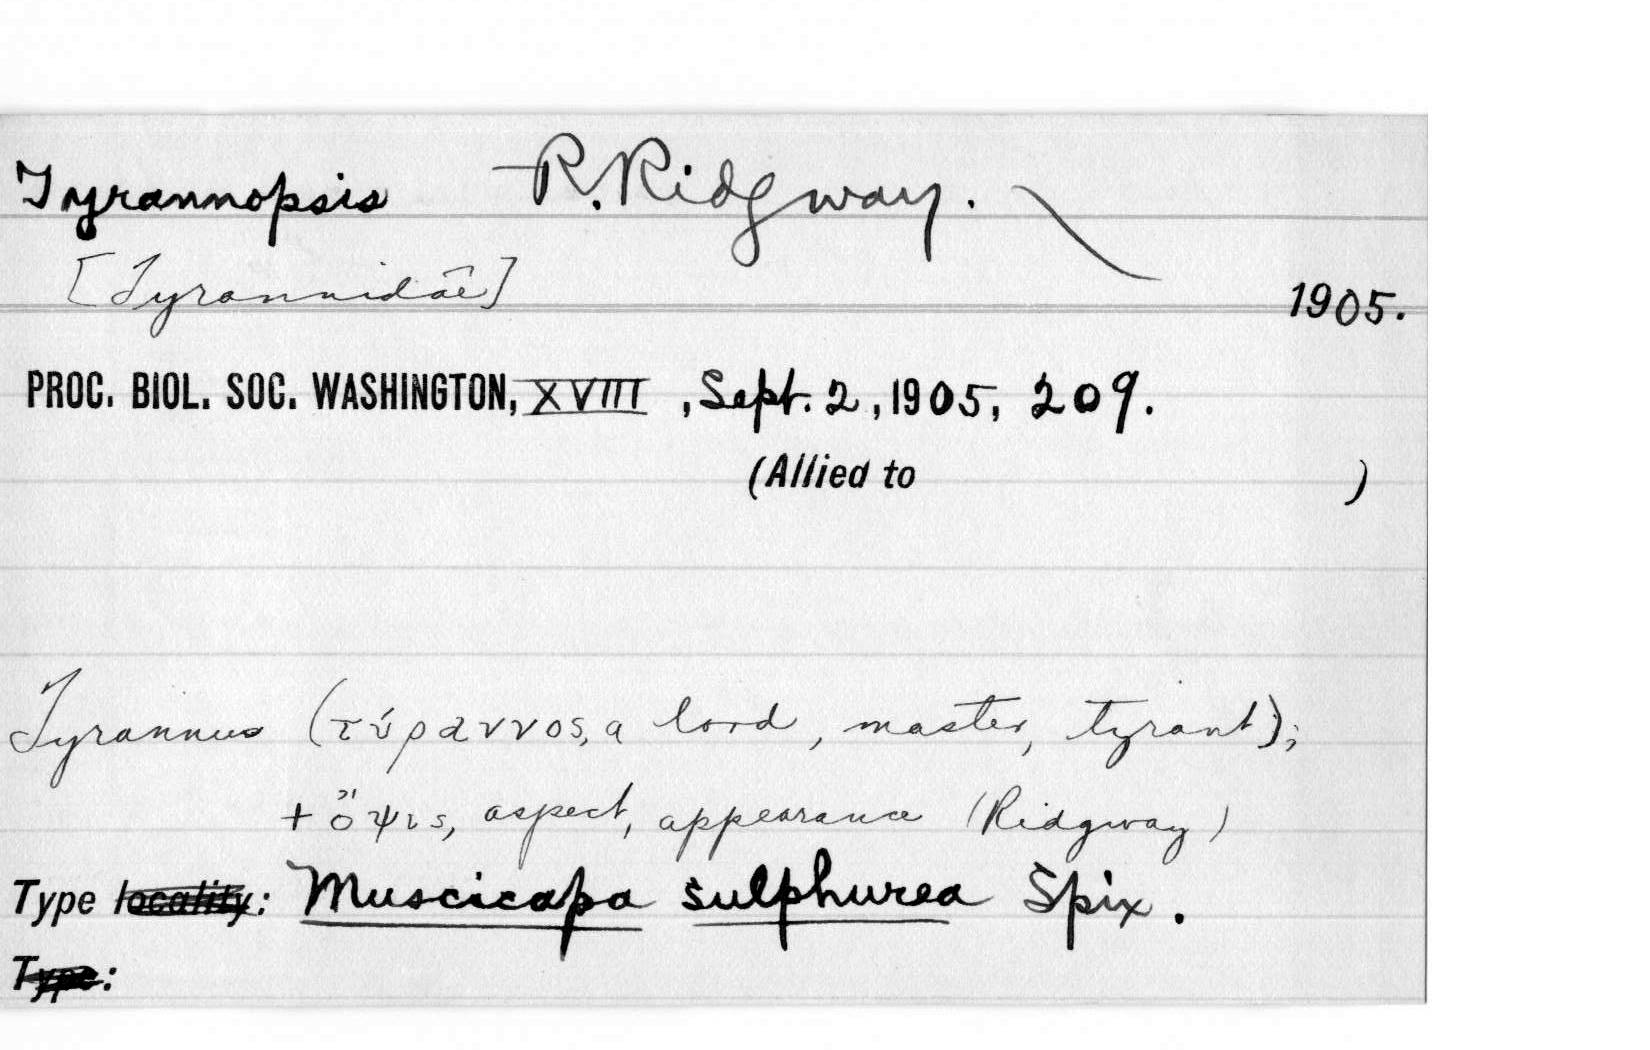 Tyrannopsis R. Ridgway.
[Tyrannidae]
1905.
PROC. BIOL. SOC. WASHINGTON, XVIII, Sept. 2, 1905, 209.
(Allied to )
Tyrannus (τύραννος, a lord, master, tyrant);
+ ὄψις, aspect, appearance (Ridgway)
Type locality: Muscicapa sulphurea Spix.
Type: